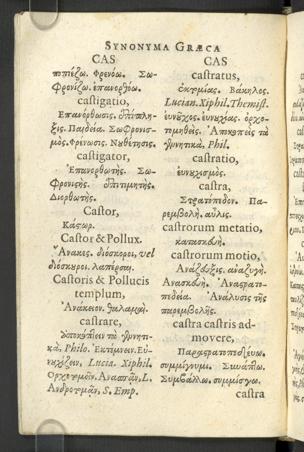 SYNONYMA GRÆCA
CAS
πιέζω. Φρενόω. Σω-
φρονίζω. ἐπανορθόω.
castigatio,
Ἐπανόρθωσις. ἐπίπλη-
ξις. Παιδεία. Σωφρονισ-
μὸς. Φρένωσις. Νουθέτησις.
castigator,
Ἐπανορθωτής. Σω-
φρονιστής. ἐπιτιμητής.
Διορθωτής.
Castor,
Κάστωρ.
Castor & Pollux.
Ἄνακες. διόσκοροι, vel
διόσκουροι. λαπέρσαι.
Castoris & Pollucis
templum,
Ἀνάκειον.
castrare,
τὰ
Philo. Ἐκτέμνειν. Εὐ-
νουχίζειν, Lucia. Xiphil.
Ὀρχοτομεῖν. Ἀνασπᾶν, L.
S. Emp.
CAS
castratus,
ἐκτομίας. Βάκηλος.
Lucian. Xiphil. Themist.
εὐνοῦχος. εὐνουχίας. ὀρχο-
τομηθείς. Ἀποκοπεὶς τὰ
γεννητικά, Phil.
castratio,
εὐνουχισμός.
castra,
Στρατόπεδον. Πα-
ρεμβολή. αὖλις.
castrorum metatio,
κατασκευή.
castrorum motio,
Ἀνάζευξις. ἀναζυγή.
Ἀνασκευή. Ἀναστρατο-
πεδεία. Ἀνάλυσις τῆς
παρεμβολῆς.
castra castris ad-
movere,
Παραστρατοπεδεύω.
συμμίγνυμι. Συνάπτω.
Συμβάλλω. συμμίσγω.
castra